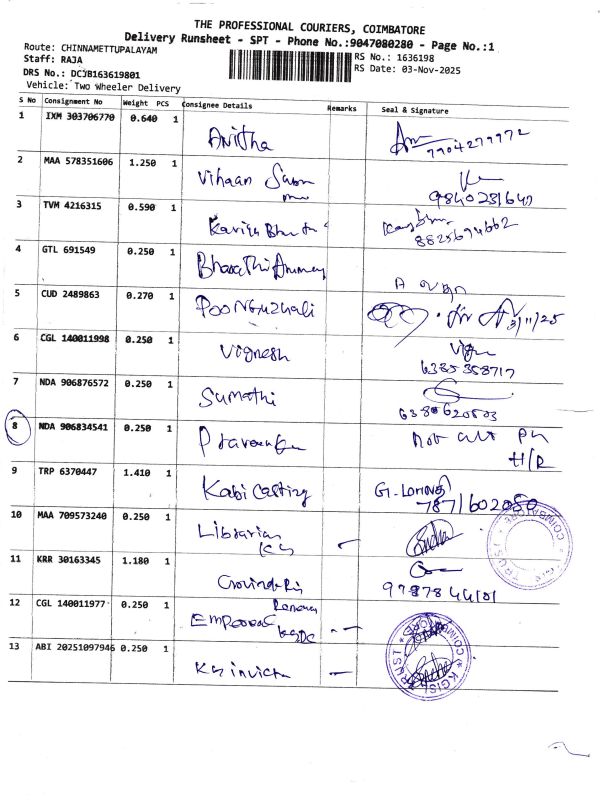 THE PROFESSIONAL COURIERS, COIMBATORE
Delivery Runsheet - SPT - Phone No.:9047080280 - Page No.:1
Route: CHINNAMETTUPALAYAM
Staff: RAJA
RS No.: 1636198
DRS No.: DCJB163619801
RS Date: 03-Nov-2025
Vehicle: Two Wheeler Delivery
S No Consignment No Weight PCS Consignee Details Remarks Seal & Signature
1 IXM 303706770 0.640 1 Anitha
7904279972
2 MAA 578351606 1.250 1 Vihaan
9840231647
3 TVM 4216315 0.590 1 Kaviya
8825694662
4 GTL 691549 0.250 1 Bharathi
5 CUD 2489863 0.270 1 Poonguzhali 3/11/25
6 CGL 140011998 0.250 1 Vignesh
6385358717
7 NDA 906876572 0.250 1 Sumathi
8 NDA 906834541 0.250 1 Not
H/R
9 TRP 6370447 1.410 1 Kabi Casting
7871602050
10 MAA 709573240 0.250 1 Librarian
COIMBATORE
11 KRR 30163345 1.180 1
9787844101
12 CGL 140011977 0.250 1
13 ABI 20251097946 0.250 1
KGISL TRUST COIMBATORE